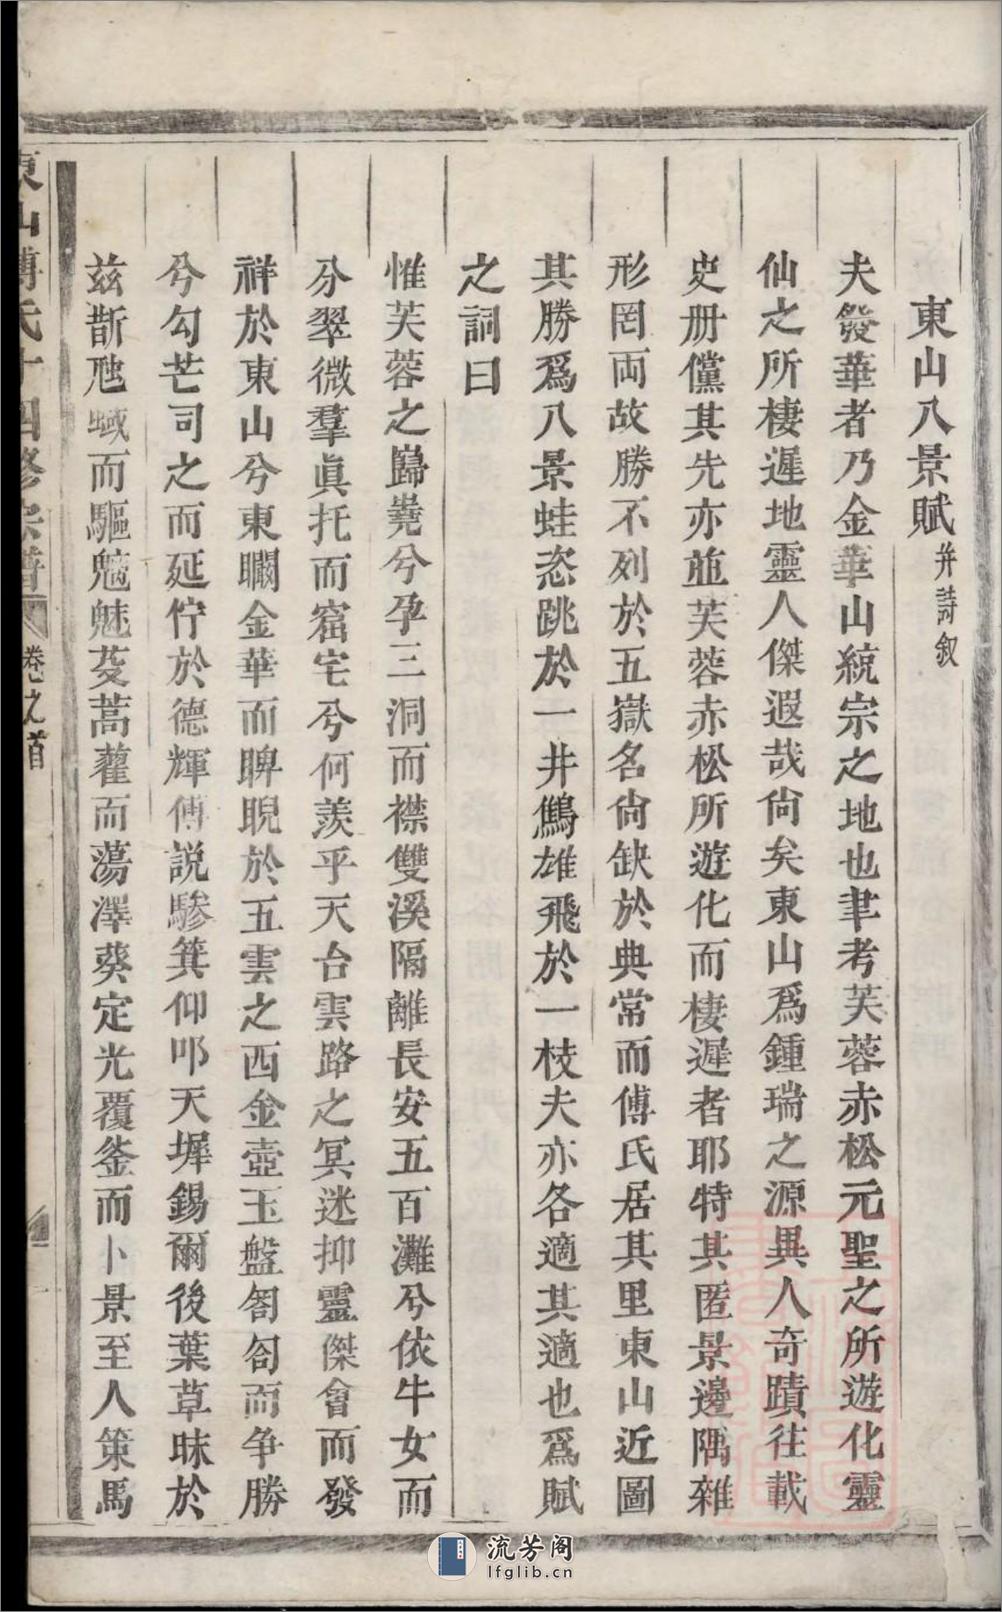 東山八景賦并詩叙
夫發華者乃金華山統宗之地也聿考芙蓉赤松元聖之所遊化靈
仙之所棲遲地靈人傑遐哉尙矣東山爲鍾瑞之源異人奇蹟往載
史册儻其先亦並芙蓉赤松所遊化而棲遲者耶特其匿景邊隅雜
形罔両故勝不列於五嶽名尙缺於典常而傅氏居其里東山近圖
其勝爲八景蛙恣跳於一井鷦雄飛於一枝夫亦各適其適也爲賦
之詞曰
惟芙蓉之巋嶤兮孕三洞而襟雙溪隔離長安五百灘兮依牛女而
分翠微羣眞托而窟宅兮何羨乎天台雲路之冥迷抑靈傑會而發
祥於東山兮東矙金華而睥睨於五雲之西金壺玉盤匌匌而争勝
兮勾芒司之而延佇於德輝傅説驂箕仰叩天墀錫爾後葉草昧於
茲斮虺蜮而驅魑魅芟蒿藋而蕩澤葵定光覆釜而卜景至人策馬
東山傅氏十四修宗譜
卷之首
一
流芳阁
lfglib.cn